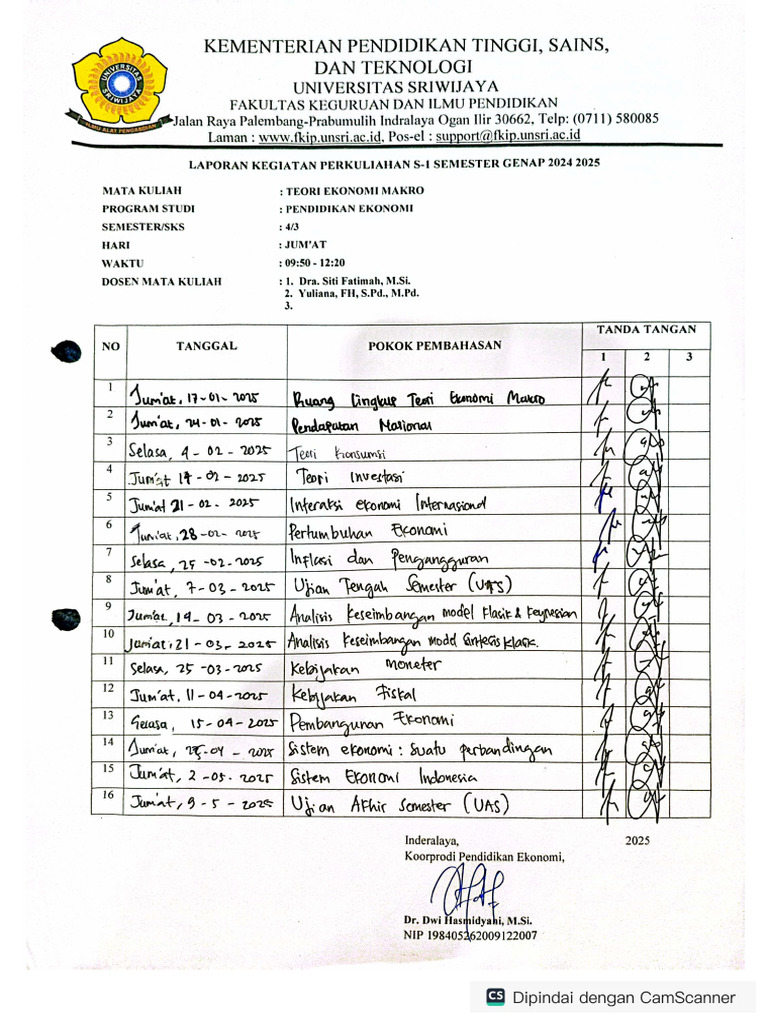 KEMENTERIAN PENDIDIKAN TINGGI, SAINS,
DAN TEKNOLOGI
UNIVERSITAS SRIWIJAYA
FAKULTAS KEGURUAN DAN ILMU PENDIDIKAN
Jalan Raya Palembang-Prabumulih Indralaya Ogan Ilir 30662, Telp: (0711) 580085
Laman : www.fkip.unsri.ac.id, Pos-el : support@fkip.unsri.ac.id
UNIVERSITAS SRIWIJAYA
ILMU ALAT PENGABDIAN
LAPORAN KEGIATAN PERKULIAHAN S-1 SEMESTER GENAP 2024 2025
MATA KULIAH : TEORI EKONOMI MAKRO
PROGRAM STUDI : PENDIDIKAN EKONOMI
SEMESTER/SKS : 4/3
HARI : JUM'AT
WAKTU : 09:50 - 12:20
DOSEN MATA KULIAH : 1. Dra. Siti Fatimah, M.Si.
2. Yuliana, FH, S.Pd., M.Pd.
3.
NO TANGGAL POKOK PEMBAHASAN TANDA TANGAN
1 2 3
1 Jum'at, 17-01-2025 Ruang Lingkup Teori Ekonomi Makro
2 Jum'at, 24-01-2025 Pendapatan Nasional
3 Selasa, 4-02-2025 Teori Konsumsi
4 Jum'at 14-02-2025 Teori Investasi
5 Jum'at 21-02-2025 Interaksi ekonomi Internasional
6 Jum'at, 28-02-2025 Pertumbuhan Ekonomi
7 Selasa, 25-02-2025 Inflasi dan Pengangguran
8 Jum'at, 7-03-2025 Ujian Tengah Semester (UTS)
9 Jum'at, 14-03-2025 Analisis Keseimbangan model Klasik & Keynesian
10 Jum'at, 21-03-2025 Analisis Keseimbangan model Sintesis Klasik.
11 Selasa, 25-03-2025 Kebijakan moneter
12 Jum'at, 11-04-2025 Kebijakan Fiskal
13 Selasa, 15-04-2025 Pembangunan Ekonomi
14 Jum'at, 25-04-2025 Sistem ekonomi : Suatu perbandingan
15 Jum'at, 2-05-2025 Sistem Ekonomi Indonesia
16 Jum'at, 9-5-2025 Ujian Akhir Semester (UAS)
Inderalaya, 2025
Koorprodi Pendidikan Ekonomi,
Dr. Dwi Hasmidyani, M.Si.
NIP 198405262009122007
CS Dipindai dengan CamScanner